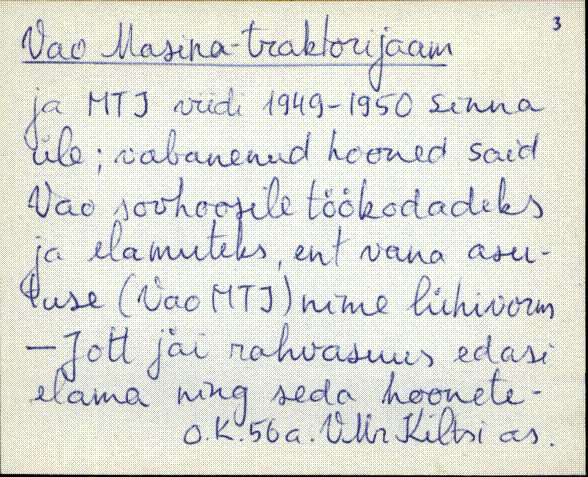 3
Vao Masina-traktorijaam
ja MTJ viidi 1949-1950 sinna
üle; vabanenud hooned said
Vao sovhoosile töökodadeks
ja elamuteks, ent vana asu-
tuse (Vao MTJ) nime lühivorm
— Jott jäi rahvasuus edasi
elama ning seda hoonete-
O.K. 56 a. VMr Kiltsi as.